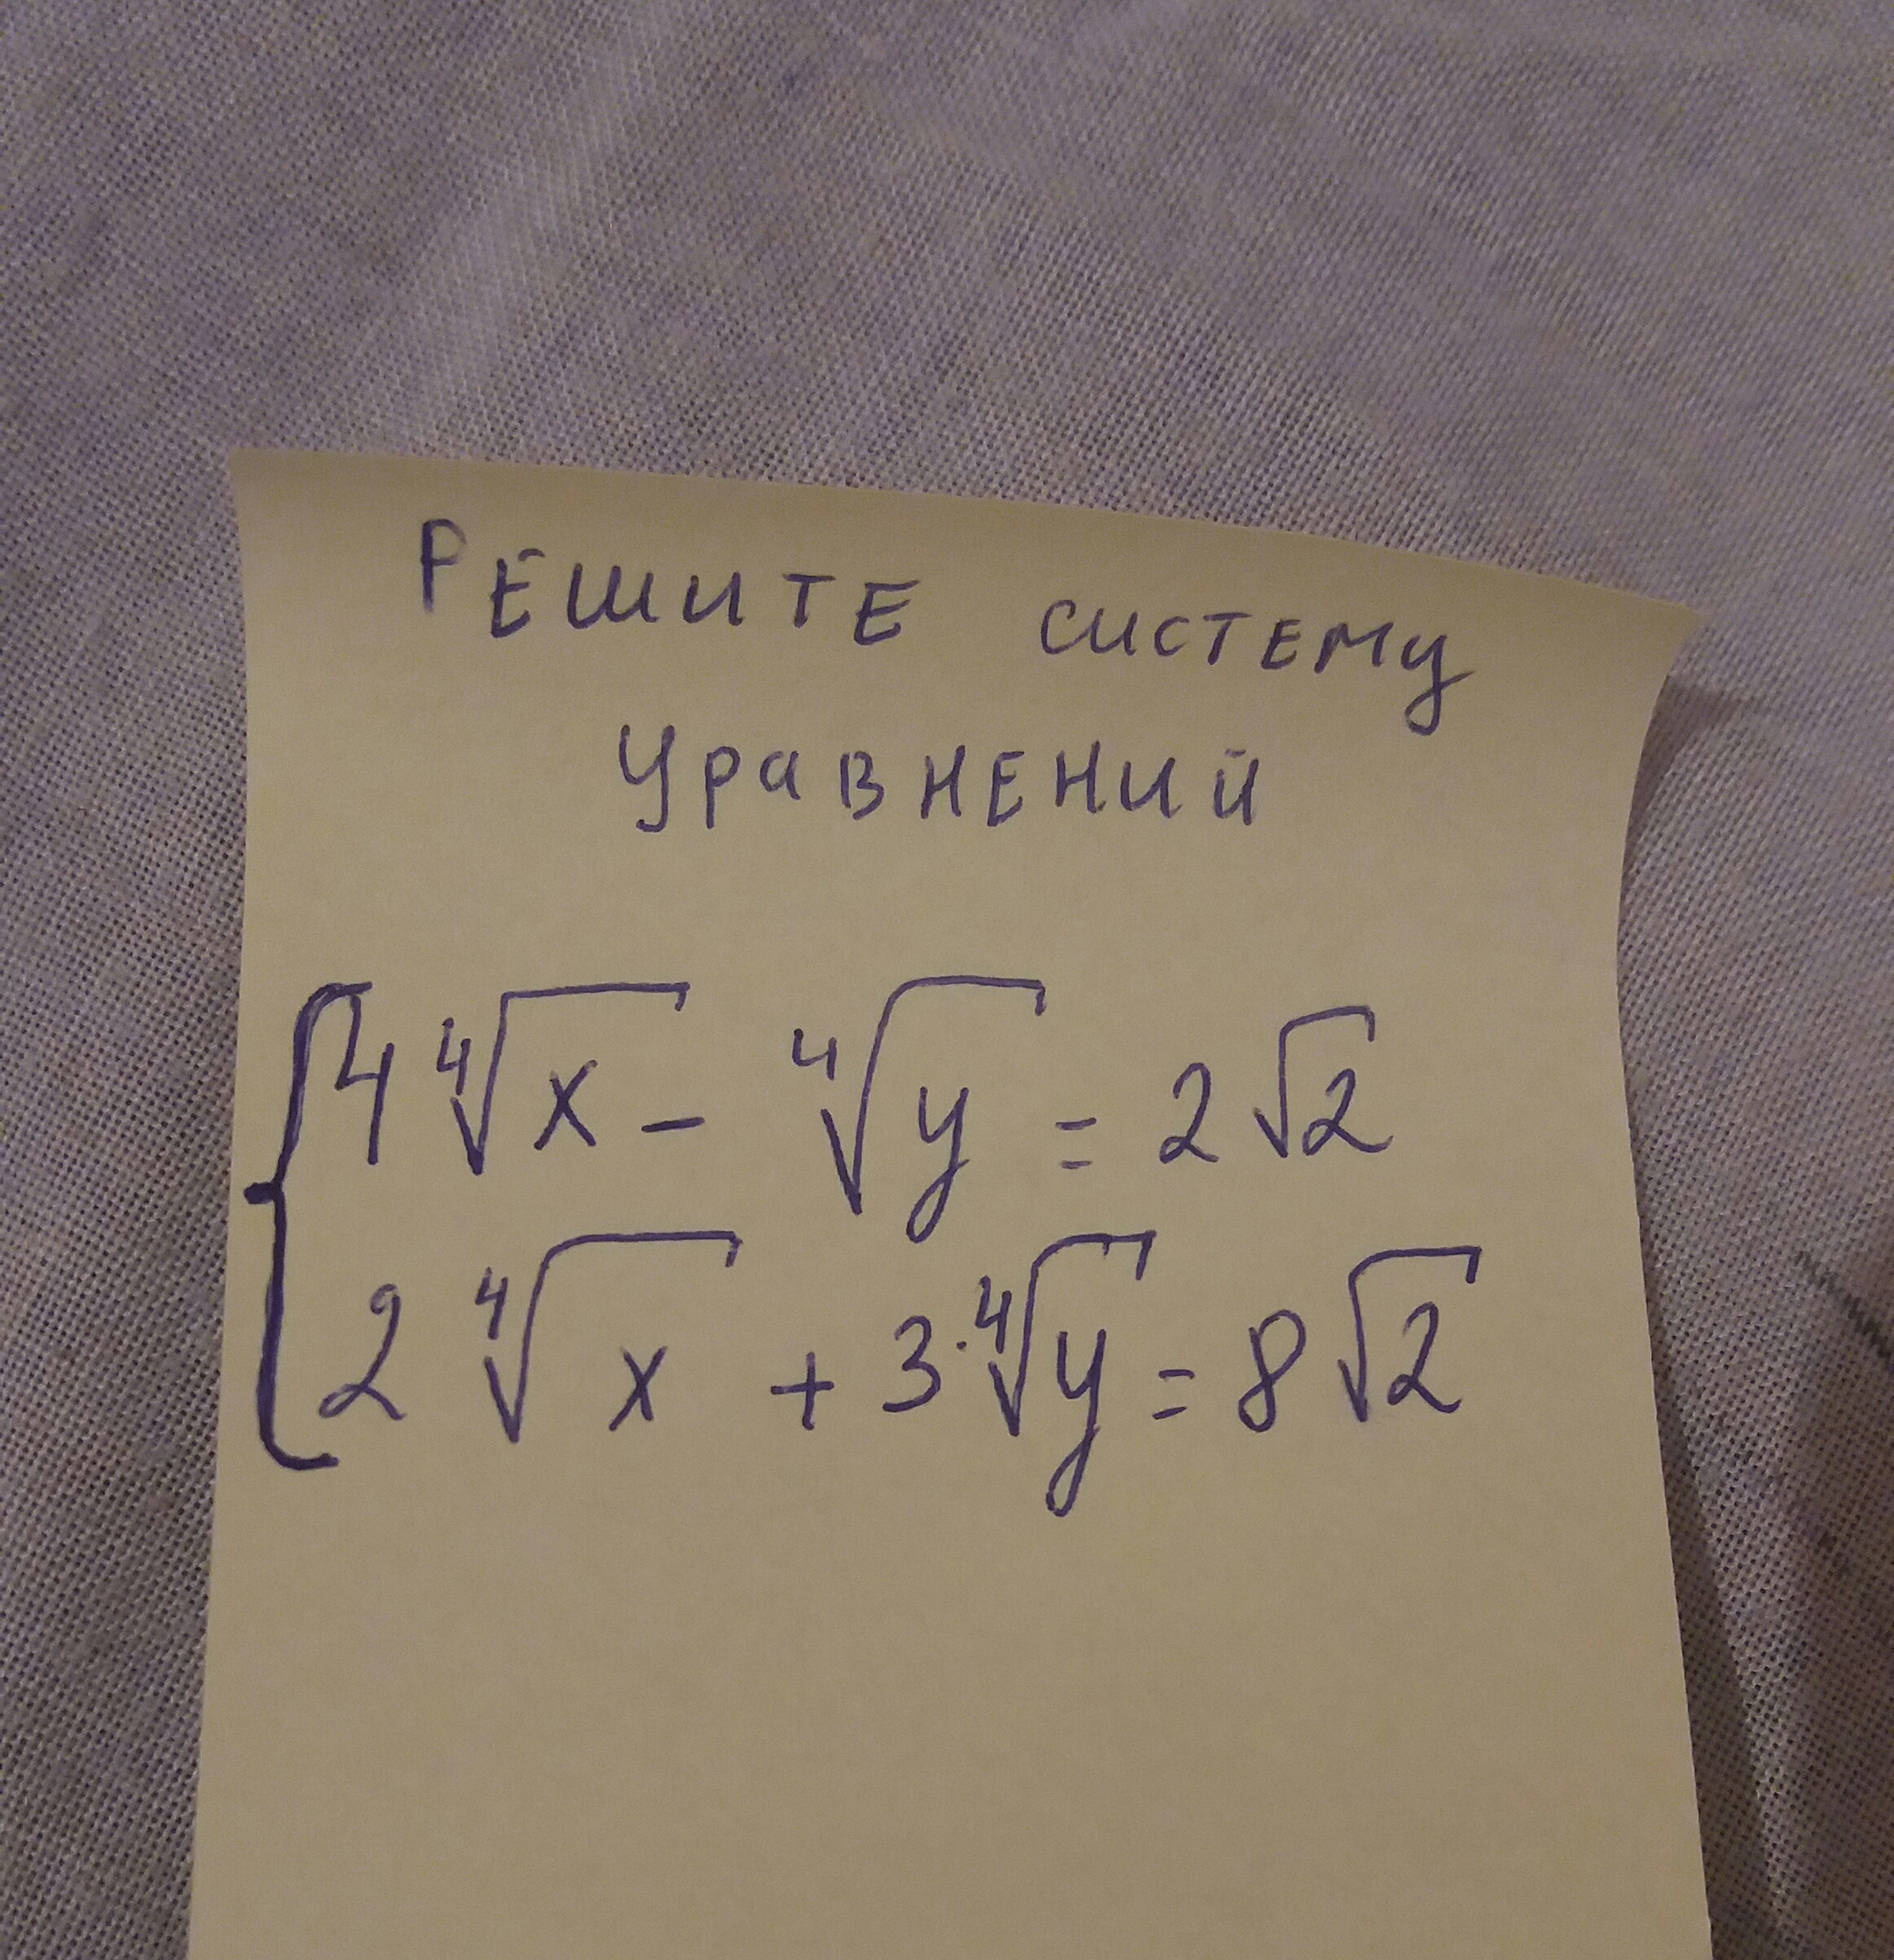 Решите систему
уравнений
4 ⁴√x - ⁴√y = 2√2
2 ⁴√x + 3·⁴√y = 8√2